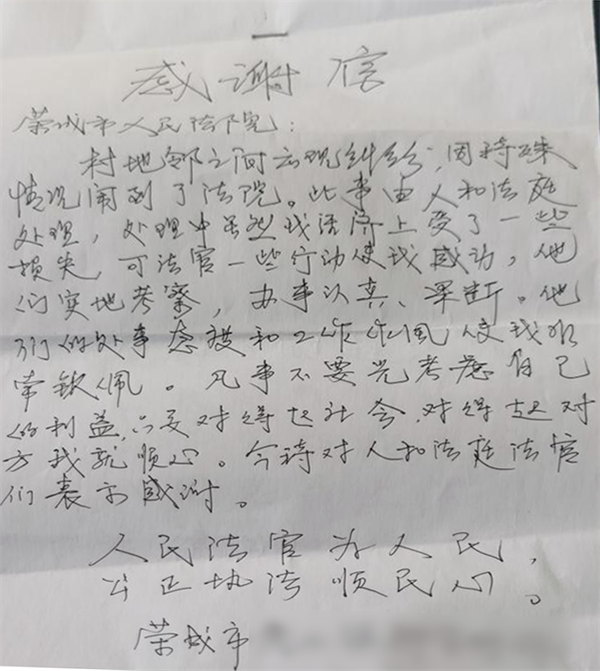 感谢信
荣成市人民法院：
村地邻之间出现纠纷，因特殊
情况闹到了法院。此事由人和法庭
处理，处理中虽然我经济上受了一些
损失，可法官一些行动使我感动，他
们实地考察，办事认真、果断。他
们的处事态度和工作作风使我非
常钦佩。凡事不要光考虑自己
的利益，只要对得起社会，对得起对
方我就顺心。今特对人和法庭法官
们表示感谢。
人民法官为人民，
公正执法顺民心。
荣成市